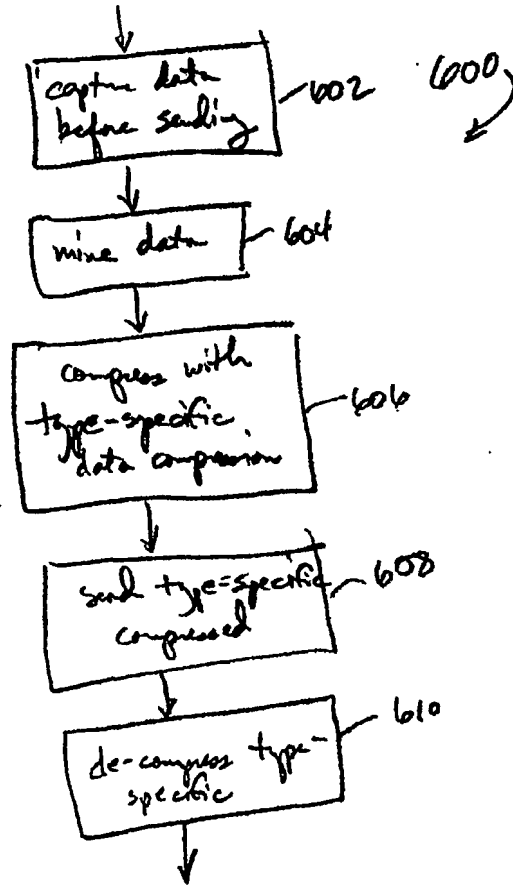 capture data
before sending
602
600
mine data
604
compress with
type-specific
data compression
606
send type-specific
compressed
608
de-compress type-
specific
610